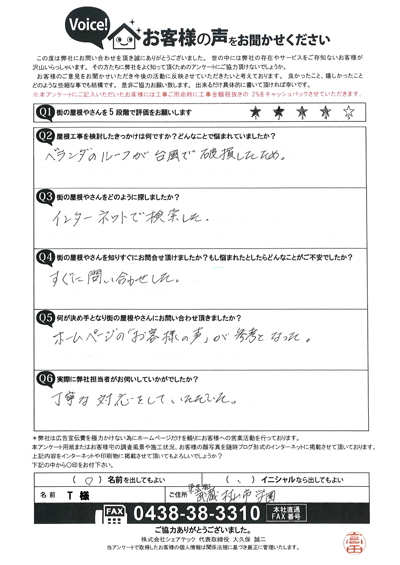 Voice!
お客様の声をお聞かせください
この度は弊社にお問い合わせを頂き誠にありがとうございました。世の中には弊社の存在やサービスをご存知ないお客様が
沢山いらっしゃいます。その方たちに弊社をよく知って頂くためのアンケートにご協力頂けないでしょうか。
お客様のご意見をお聞かせいただき今後の活動に反映させていただきたいと考えております。良かったこと、嬉しかったこと
どのような些細な事でも結構です。是非ご協力お願い致します。出来るだけ具体的に書いて頂ければ幸いです。
※本アンケートにご記入いただいたお客様には工事ご用命時に工事金額税抜きの2%をキャッシュバックさせていただきます。
Q1 街の屋根やさんを5段階で評価をお願いします ★ ★ ★ ★ ☆
Q2 屋根工事を検討したきっかけは何ですか?どんなことで悩まれていましたか?
ベランダのルーフが台風で破損したため。
Q3 街の屋根やさんをどのように探しましたか?
インターネットで検索した.
Q4 街の屋根やさんを知りすぐにお問合せ頂けましたか?もし悩まれたとしたらどんなことがご不安でしたか?
すぐに問い合わせした。
Q5 何が決め手となり街の屋根やさんにお問い合わせ頂きましたか?
ホームページの「お客様の声」が参考となった。
Q6 実際に弊社担当者がお伺いしていかがでしたか?
丁寧な対応をしていただいた。
*弊社は広告宣伝費を極力かけない為にホームページだけを頼りにお客様への営業活動を行っております。
本アンケート用紙またはお客様宅の調査風景や施工状況、お客様の顔写真を随時ブログ形式のインターネットに掲載させて頂いております。
上記内容をインターネットや印刷物に掲載させて頂いてもよろしいでしょうか?
下記の中から〇印をお付下さい。
( ○ ) 名前を出してもよい ( ) イニシャルなら出してもよい
名前 T 様 ご住所 東京都武蔵村山市学園
FAX 0438-38-3310 本社直通 FAX番号
ご協力ありがとうございました。
株式会社シェアテック 代表取締役 大久保 誠二
当アンケートで取得したお客様の個人情報は関係法規に基づき厳正に管理いたします。